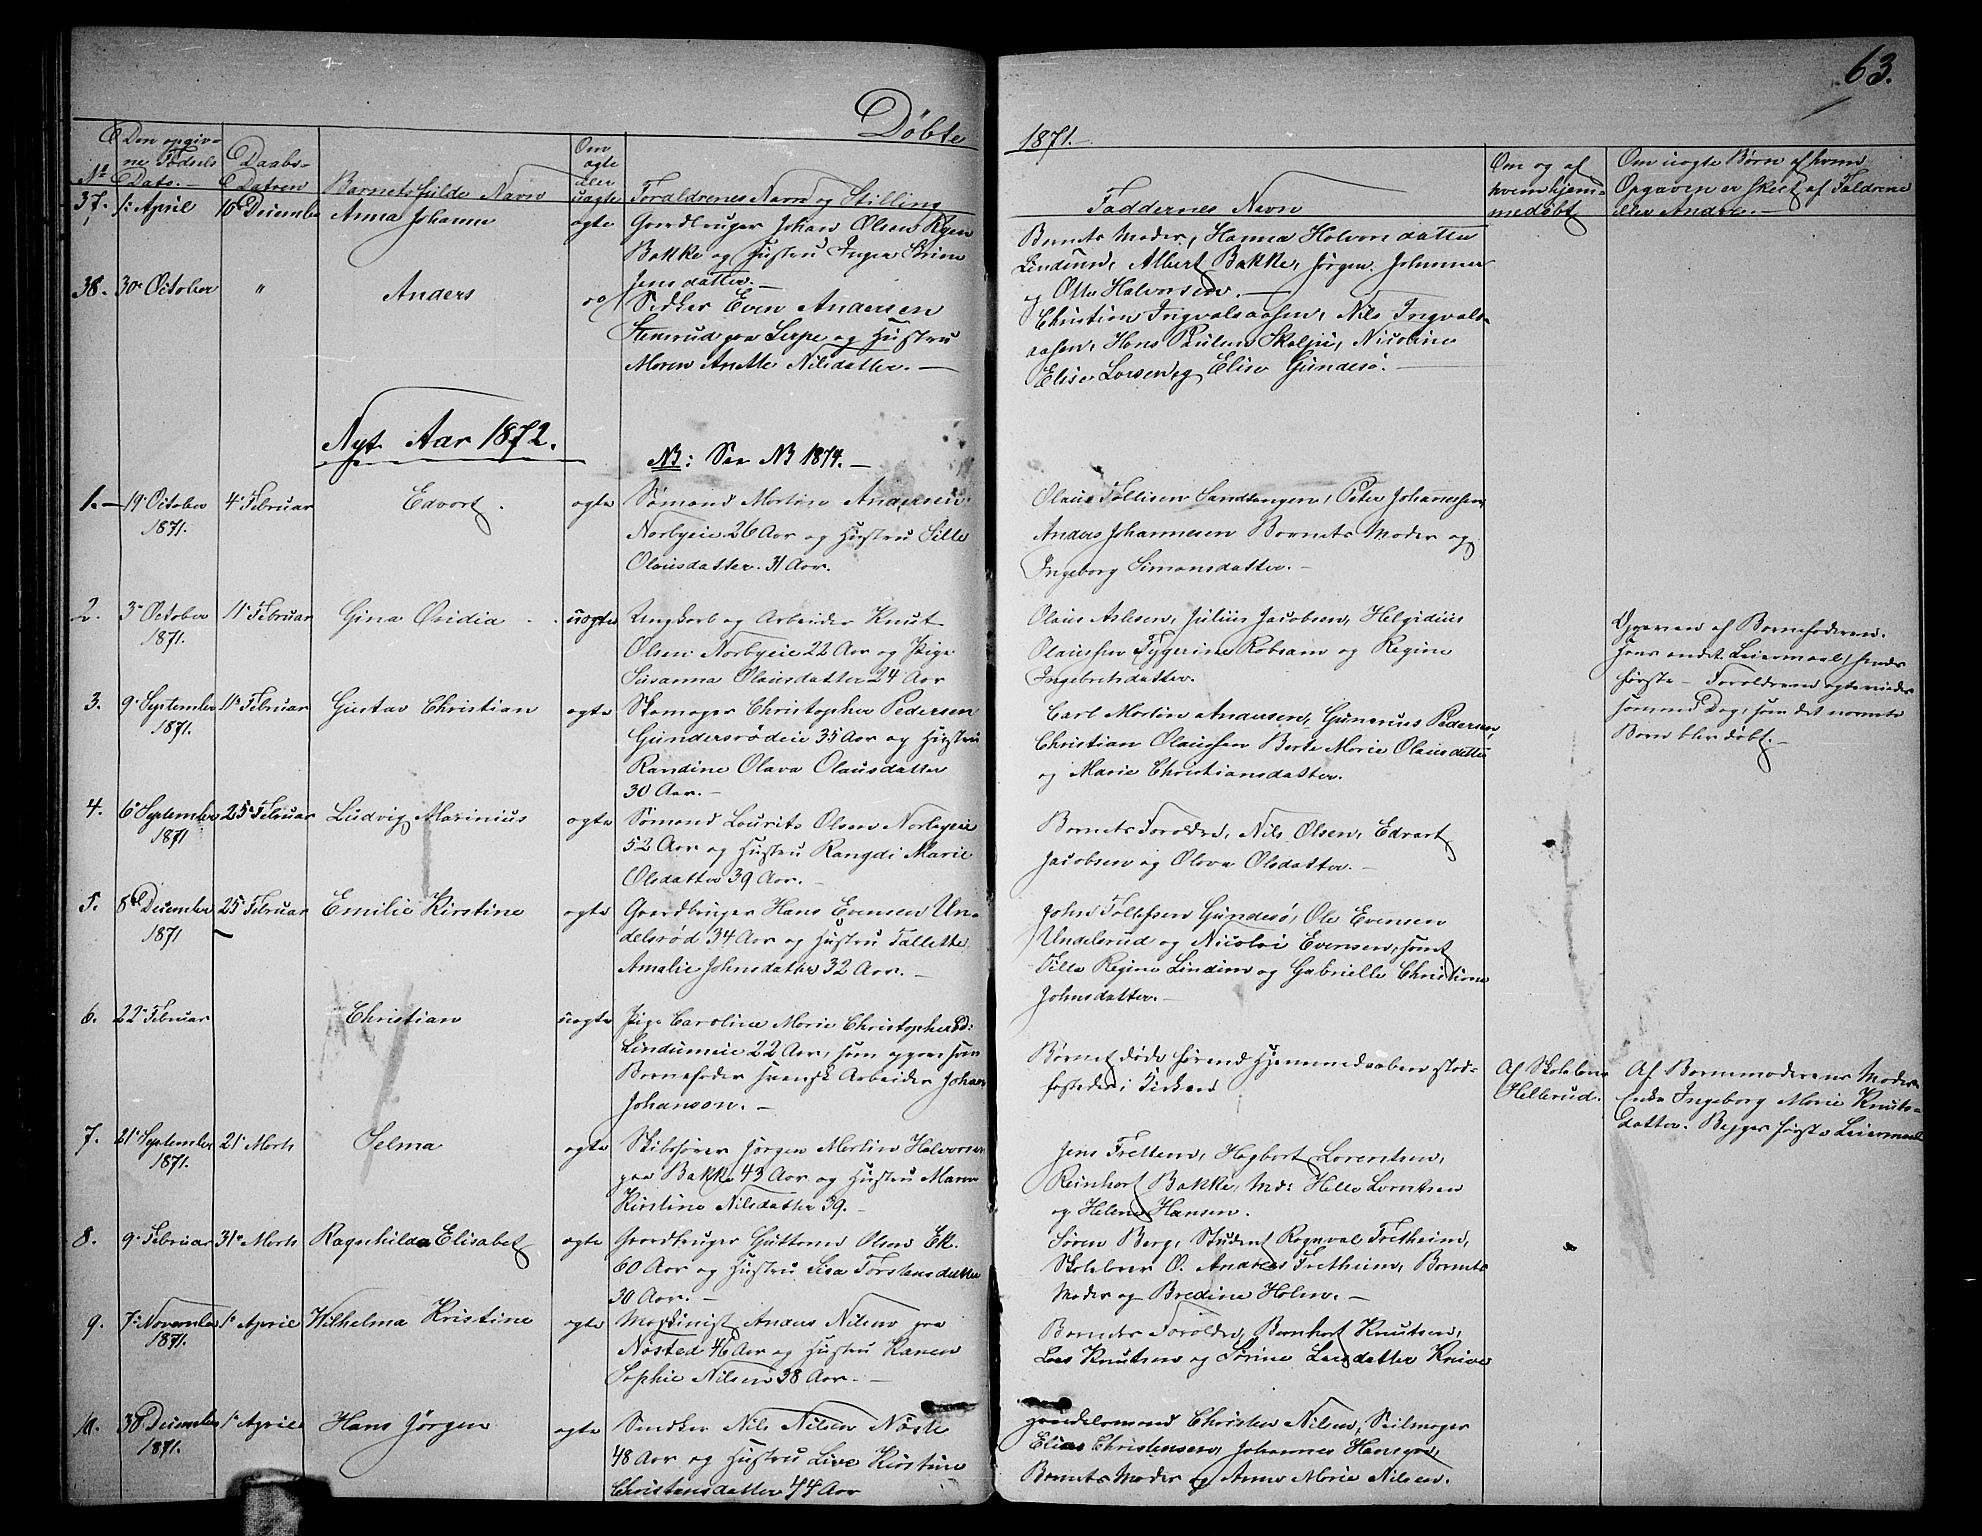 63.
Døbte 1871.
No
Den opgivne Fødsels Dato.
Daabs-Datoen
Barnets fulde Navn
Om ægte eller uægte
Forældrenes Navn og Stilling
Faddernes Navn
Om og af hvem hjemmedøbt
Om uægte Børn af hvem Opgaven er skeet, af Forældrene eller Andre.
37. 1 April 10 December Anna Johanne ægte
Gaardbruger Johan Olsen
Bakke og Hustru Inger Trine
Jensdatter.
Barnets Moder, Hanna Halvorsdatter
Lindum, Albert Bakke, Jørgen Johannes
og Otto Halvorsen.
38. 30 October " Anders
Even Andersen
og Hustru
Maren Anette Nilsdatter.
Christian Ingvalsaasen, Nils Ingvals-
aasen, Hans Paulsen, Nicoline
Elise Larsen og Elise Gundesø.
Nyt Aar 1872.
NB: See NB 1874.
1. 19 October 1871. 4 Februar Edvart ægte
Sømand Morten Andersen
Norbyeie 26 Aar og Hustru Sille
Olausdatter 31 Aar.
Olaus Tollisen Sandtangen, Peter Johannessen,
Anders Johannesen Barnets Moder og
Ingeborg Simonsdatter.
2. 3 October 1871. 11 Februar Gina Osidia uægte
Ungkarl og Arbeider Knut
Olsen Norbyeie 22 Aar og Pige
Susanna Olausdatter 24 Aar
Olaus Aslesen, Julius Jacobsen, Helgidius
Olaussen Tygerine Robsam og Regine
Ingebretsdatter.
Opgaven af Barnefaderen.
Hans andet Leiermaal, hendes
første – Forældrene ægtevviedes
samme Dag, som det nævnte
Barn blev døbt.
3. 9 September 1871. 11 Februar Gustav Christian ægte
Skomager Christopher Pedersen
Gundersrødeie 35 Aar og Hustru
Randine Olava Olausdatter
30 Aar.
Carl Martin Andersen, Gunerius Pedersen,
Christian Olaussen Berte Marie Olausdatter
og Marie Christiansdatter.
4. 6 September 1871 25 Februar Ludvig Marinius ægte
Sømand Laurits Olsen Norbyeie
52 Aar og Hustru Rangdi Marie
Olsdatter 39 Aar.
Barnets Forældre, Nils Olsen, Edvart
Jacobsen og Olava Olsdatter.
5. 8 December 1871 25 Februar Emilie Kirstine ægte
Gaardbruger Hans Evensen Un-
delsrød 34 Aar og Hustru Tallette
Amalie Johnsdatter 32 Aar.
John Tollefsen Gundesø, Ole Evensen
Undelsrud og Nicolai Evensen, samt
Tilla Regine Lindum og Gabrielle Christine
Johnsdatter.
6. 22 Februar Christian uægte
Pige Caroline Marie ChristophersD:
Lindumeie 22 Aar, som opgav som
Barnefader svensk Arbeider Johan
Johanson.
Barnet døde førend Hjemmedaaben stad-
fæstedes i Kirken
Af Skolelærer
Hellerud.
Af Barnemoderens Moder
Enke Ingeborg Marie Knuts-
datter. Begges første Leiermaal
7. 21 September 1871. 21 Marts Selma ægte
Skibsfører Jørgen Martin Halvorsen
paa Bakke 43 Aar og Hustru Maren
Kirstine Nilsdatter 39.
Jens Fretteim, Hagbart Lorentsen,
Reinhart Bakke, Md: Helle Lorntsen
og Helene Hansen.
8. 9 Februar 31 Marts Ragnhilda Elisabet ægte
Gaardbruger Guttorm Olsen Ek.
60 Aar og Hustru Lisa Torstensdatter
30 Aar.
Søren Berg, Student Rognval Fretheim,
Skolelærer O. Andreas Fretheim, Barnets
Moder og Bredine Holm.
9. 7 November 1871. 1 April Wilhelma Kristine ægte
Maskinist Anders Nilsen paa
Nøsted 46 Aar og Hustru Karen
Sophie Nilsen 38 Aar.
Barnets Forældre, Bernhart Knutsen,
Lars Knutsen og Sørine Larsdatter Knive
10. 30 December 1871. 1 April Hans Jørgen ægte
Snedker Nils Nilsen Nøste
48 Aar og Hustru Live Kirstine
Christensdatter 44 Aar
Handelsmand Christen Nilsen, Seilmager
Elias Christensen, Johannes Hansen,
Barnets Moder og Anne Marie Nilsen.